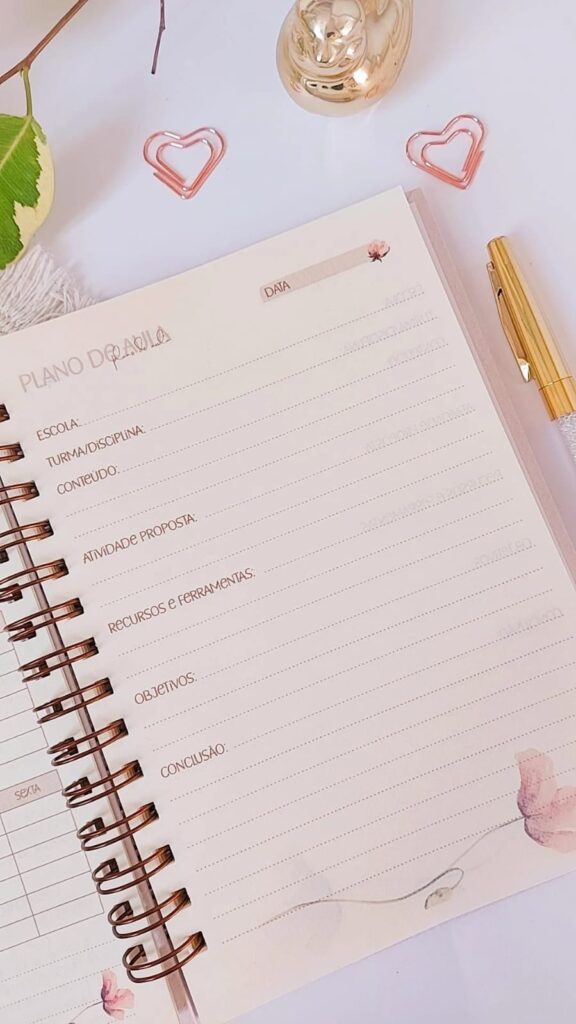 DATA
PLANO DE AULA
ESCOLA:
TURMA/DISCIPLINA:
CONTEÚDO:
ATIVIDADE PROPOSTA:
RECURSOS E FERRAMENTAS:
OBJETIVOS:
CONCLUSÃO:
SEXTA